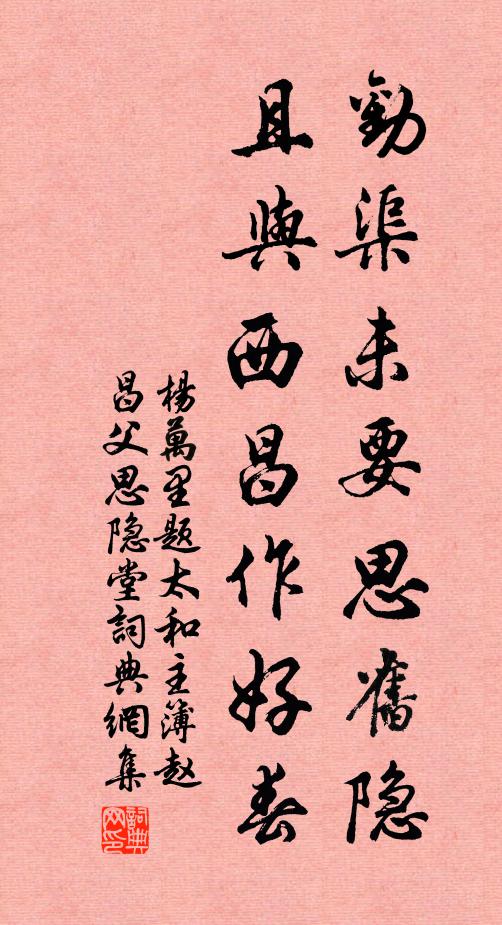 勸渠未要思舊隐
且與西昌作好春
楊萬里题太和主簿赵
昌父思隐堂詞典網集
詞典网印